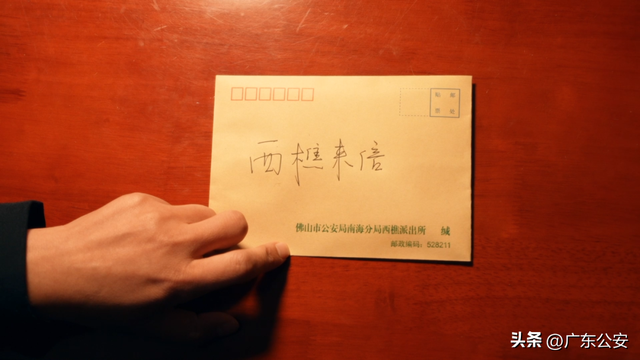 西樵来信
佛山市公安局南海分局西樵派出所 缄
邮政编码：528211
头条 @广东公安